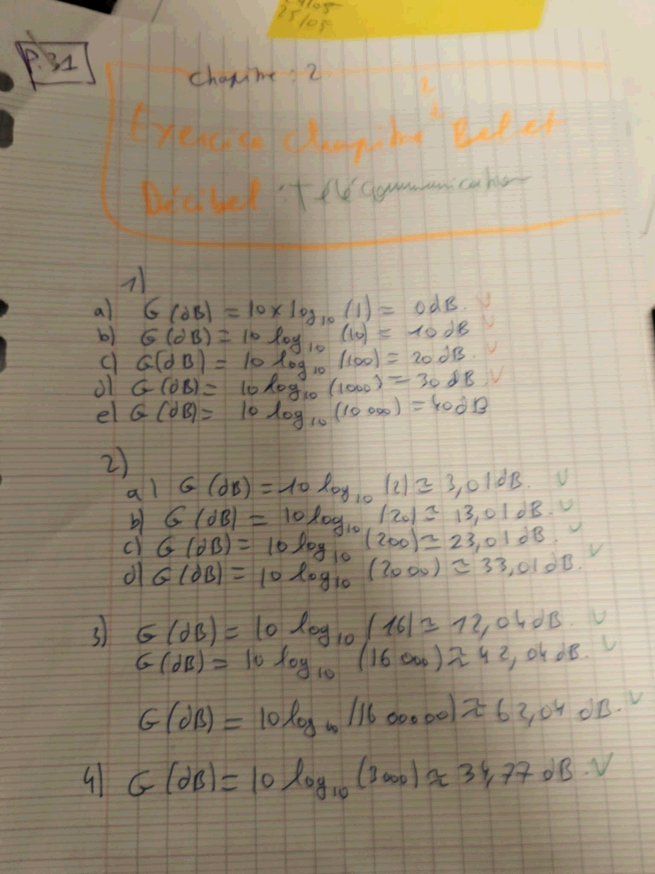 25/05
P.31
chapitre : 2
2
Exercice chapitre Bel et
Décibel : Télécommunication
1)
a) G (dB) = 10 x log10 (1) = 0dB. V
b) G (dB) = 10 log10 (10) = 10 dB V
c) G(dB) = 10 log10 (100) = 20 dB. V
d) G (dB) = 10 log10 (1000) = 30 dB. V
e) G (dB) = 10 log10 (10 000) = 40dB
2)
a) G (dB) = 10 log10 (2) ≃ 3,01dB. V
b) G (dB) = 10 log10 (20) ≃ 13,01 dB. V
c) G (dB) = 10 log10 (200) ≃ 23,01 dB. V
d) G (dB) = 10 log10 (2000) ≃ 33,01dB. V
3) G (dB) = 10 log10 (16) ≃ 12,04 dB. V
G(dB) = 10 log10 (16 000) ≈ 42,04 dB. V
G (dB) = 10 log10 (16 000 00) ≈ 62,04 dB. V
4) G (dB) = 10 log10 (3000) ≈ 34,77 dB. V